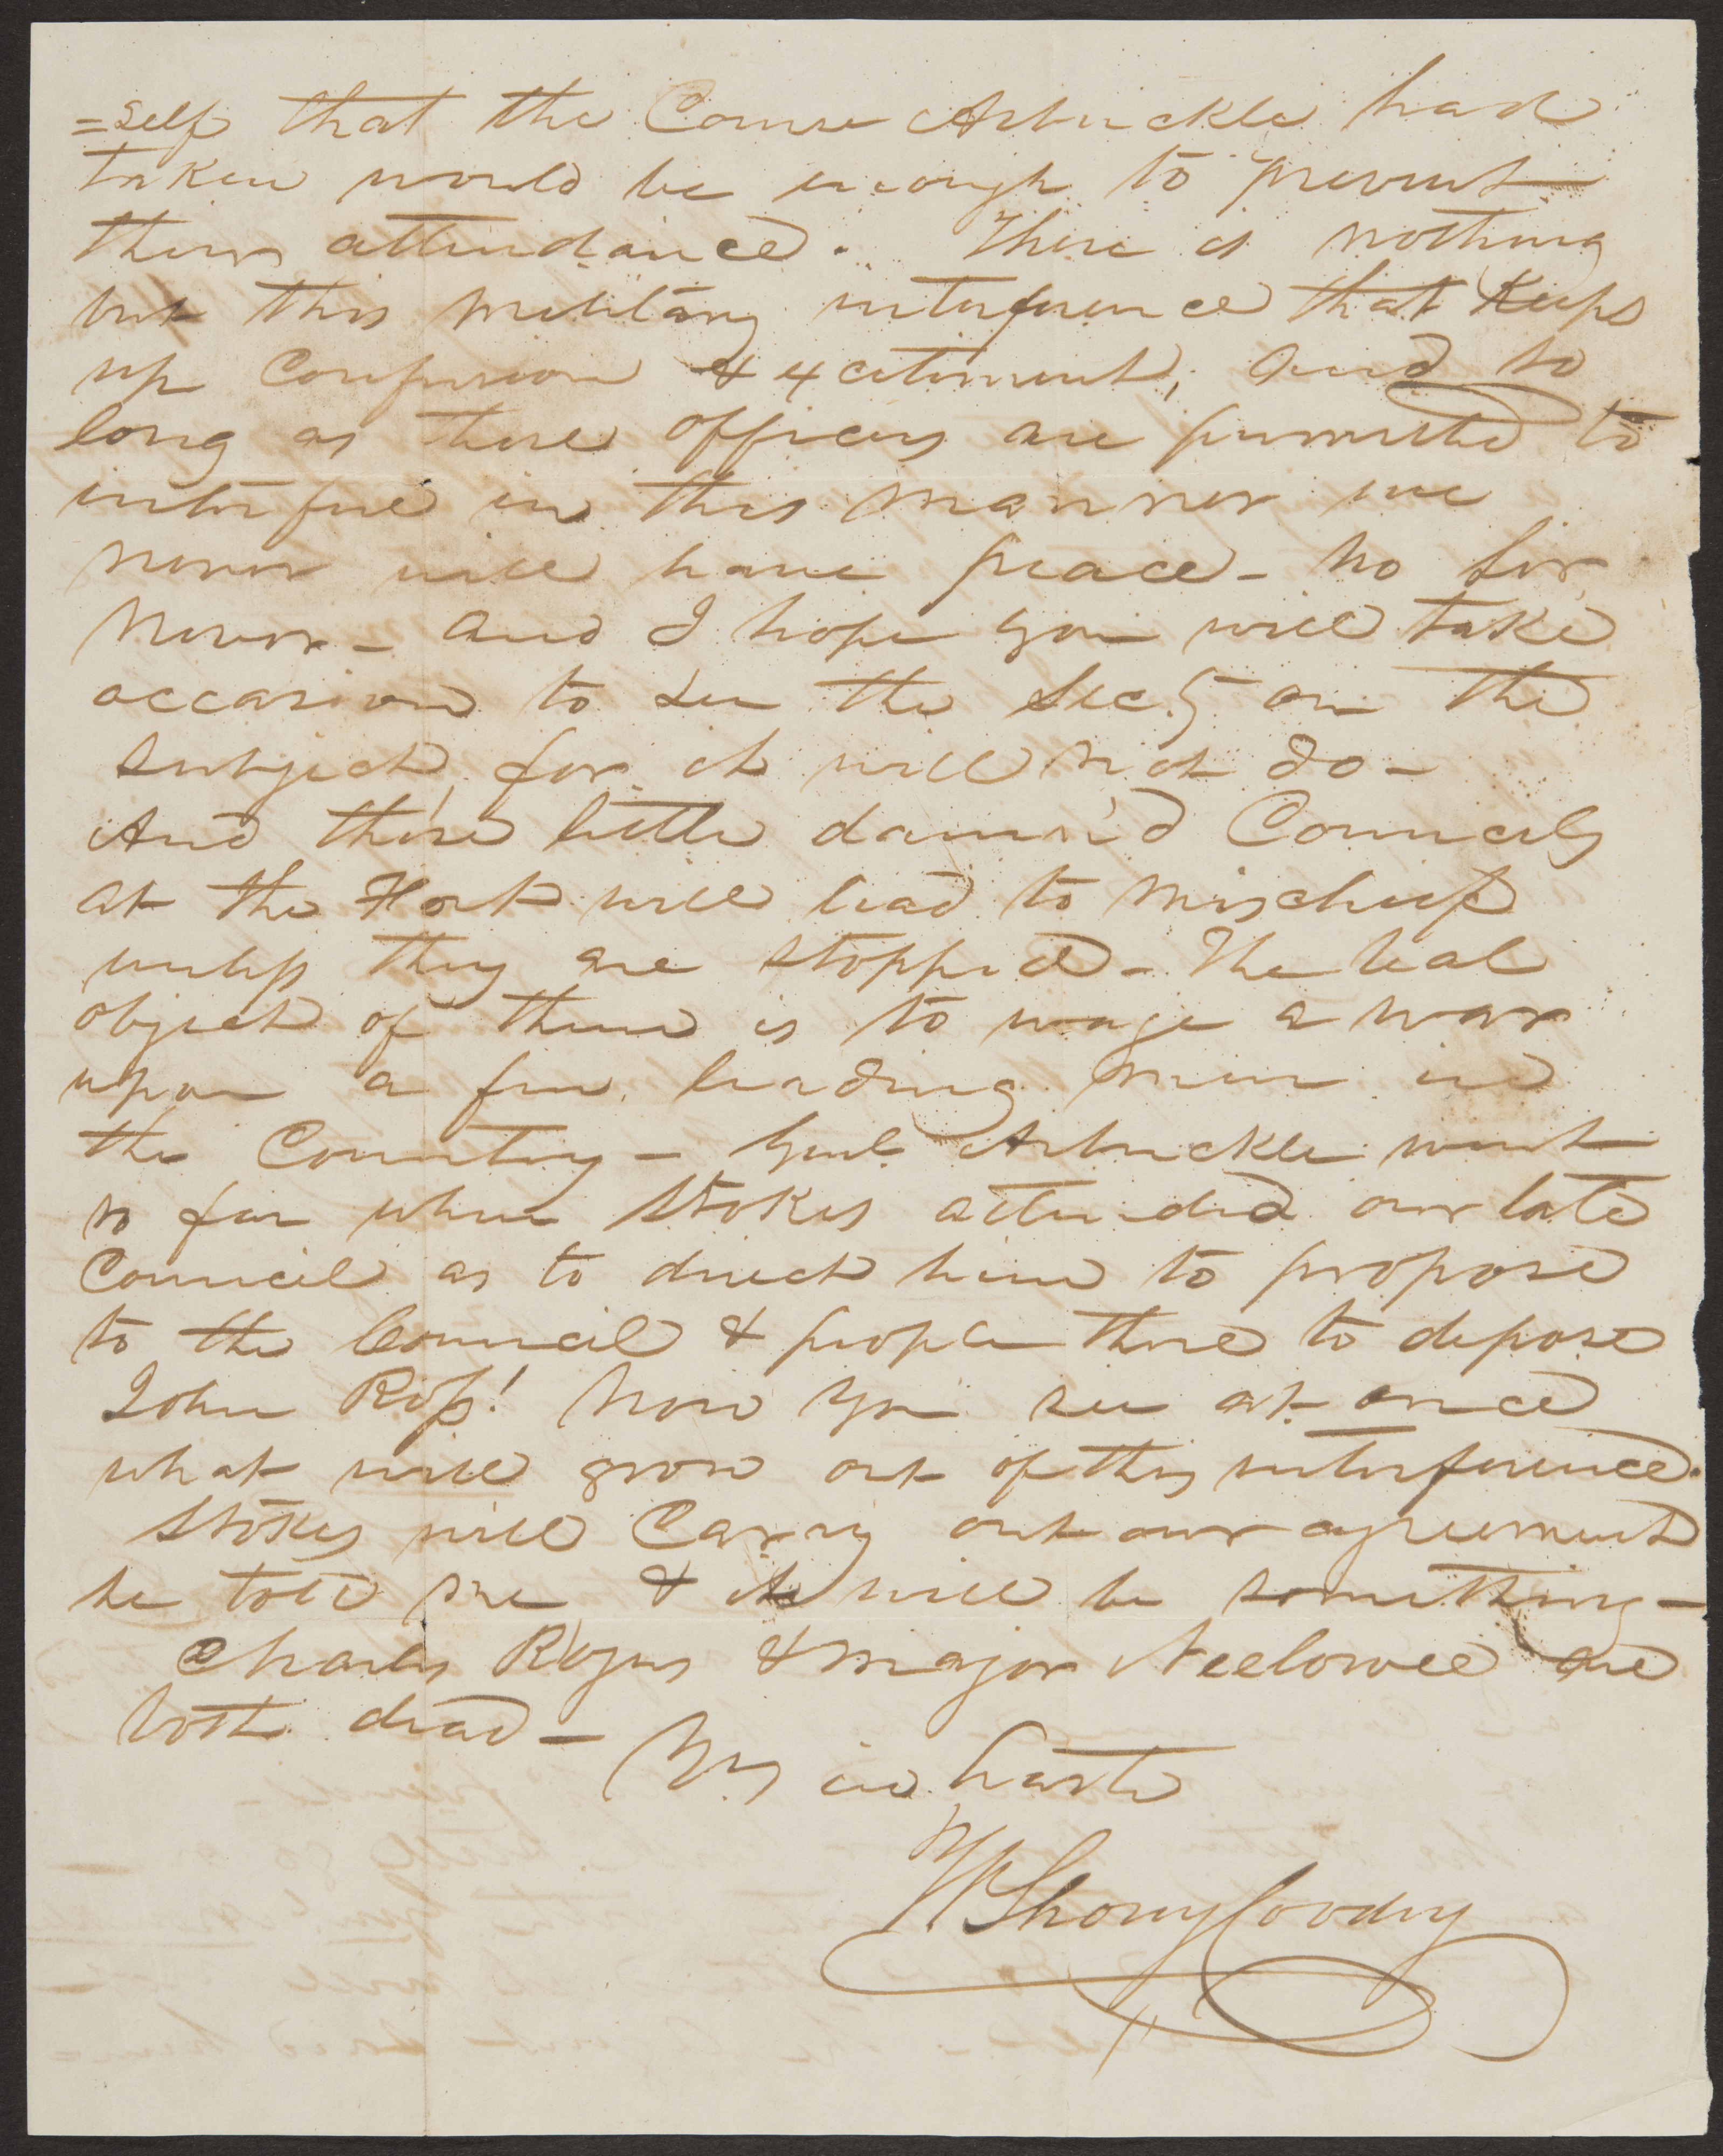 =self that the Course Arbuckle had
taken would be enough to prevent
their attendance. There is nothing
but this military interference that keeps
up confusion & excitement, and so
long as these officers are permitted to
interfere in this manner we
never will have peace - no for
never - and I hope you will take
occasion to see the Secy on the
subject, for it will not do -
And these little damn'd Councils
at the Fort will lead to mischief
unless they are stopped - The real
object of them is to wage a war
upon a few leading men in
the Country - Genl Arbuckle went
so far when Stokes attended our late
Council as to direct him to propose
to the Council & people there to depose
John Ross! Now you see at once
what will grow out of this interference.
Stokes will carry out our agreement
he told me & it will be something -
Charles Rogers & Major are
both dead -
Yrs in haste
Wm Shorey Coodey